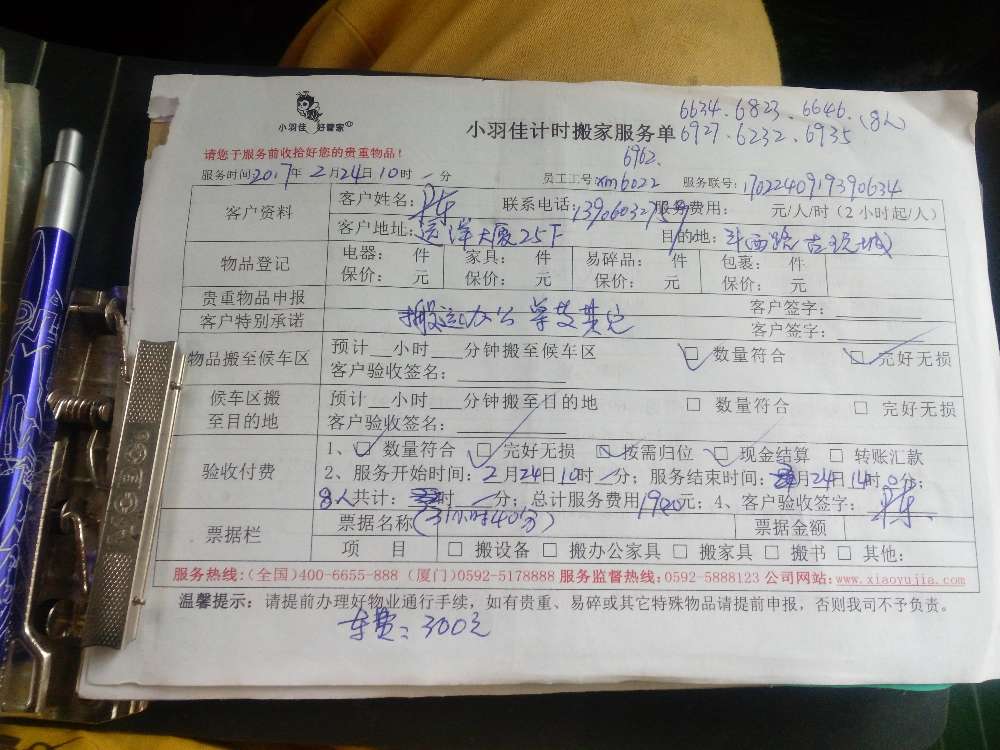 6634、6823、6646、(8人)
小羽佳 好管家
小羽佳计时搬家服务单
6927、6232、6935
6962
请您于服务前收拾好您的贵重物品!
服务时间:2017年2月24日10时 分 员工工号:xm6022 服务联号:1702240919390634
客户资料 客户姓名: 联系电话: 服务费用: 元/人/时(2小时起/人)
客户地址:远洋大厦25F 目的地:斗西路古玩城
物品登记 电器: 件 家具: 件 易碎品: 件 包裹: 件
保价: 元 保价: 元 保价: 元 保价: 元
贵重物品申报 客户签字:
客户特别承诺 搬运办公 客户签字:
物品搬至候车区 预计__小时___分钟搬至候车区 数量符合 完好无损
客户验收签名:
候车区搬至目的地 预计__小时___分钟搬至目的地 数量符合 完好无损
客户验收签名:
验收付费 1、数量符合 完好无损 按需归位 现金结算 转账汇款
2、服务开始时间:2月24日10时 分;服务结束时间: 月24日14时 分;
8人共计: 时 分;总计服务费用1920元;4、客户验收签字:
票据栏 票据名称(31小时40分) 票据金额
项 目 搬设备 搬办公家具 搬家具 搬书 其他:
服务热线:(全国)400-6655-888 (厦门)0592-5178888 服务监督热线:0592-5888123 公司网站:www.xiaoyujia.com
温馨提示:请提前办理好物业通行手续,如有贵重、易碎或其它特殊物品请提前申报,否则我司不予负责。
车费:300元